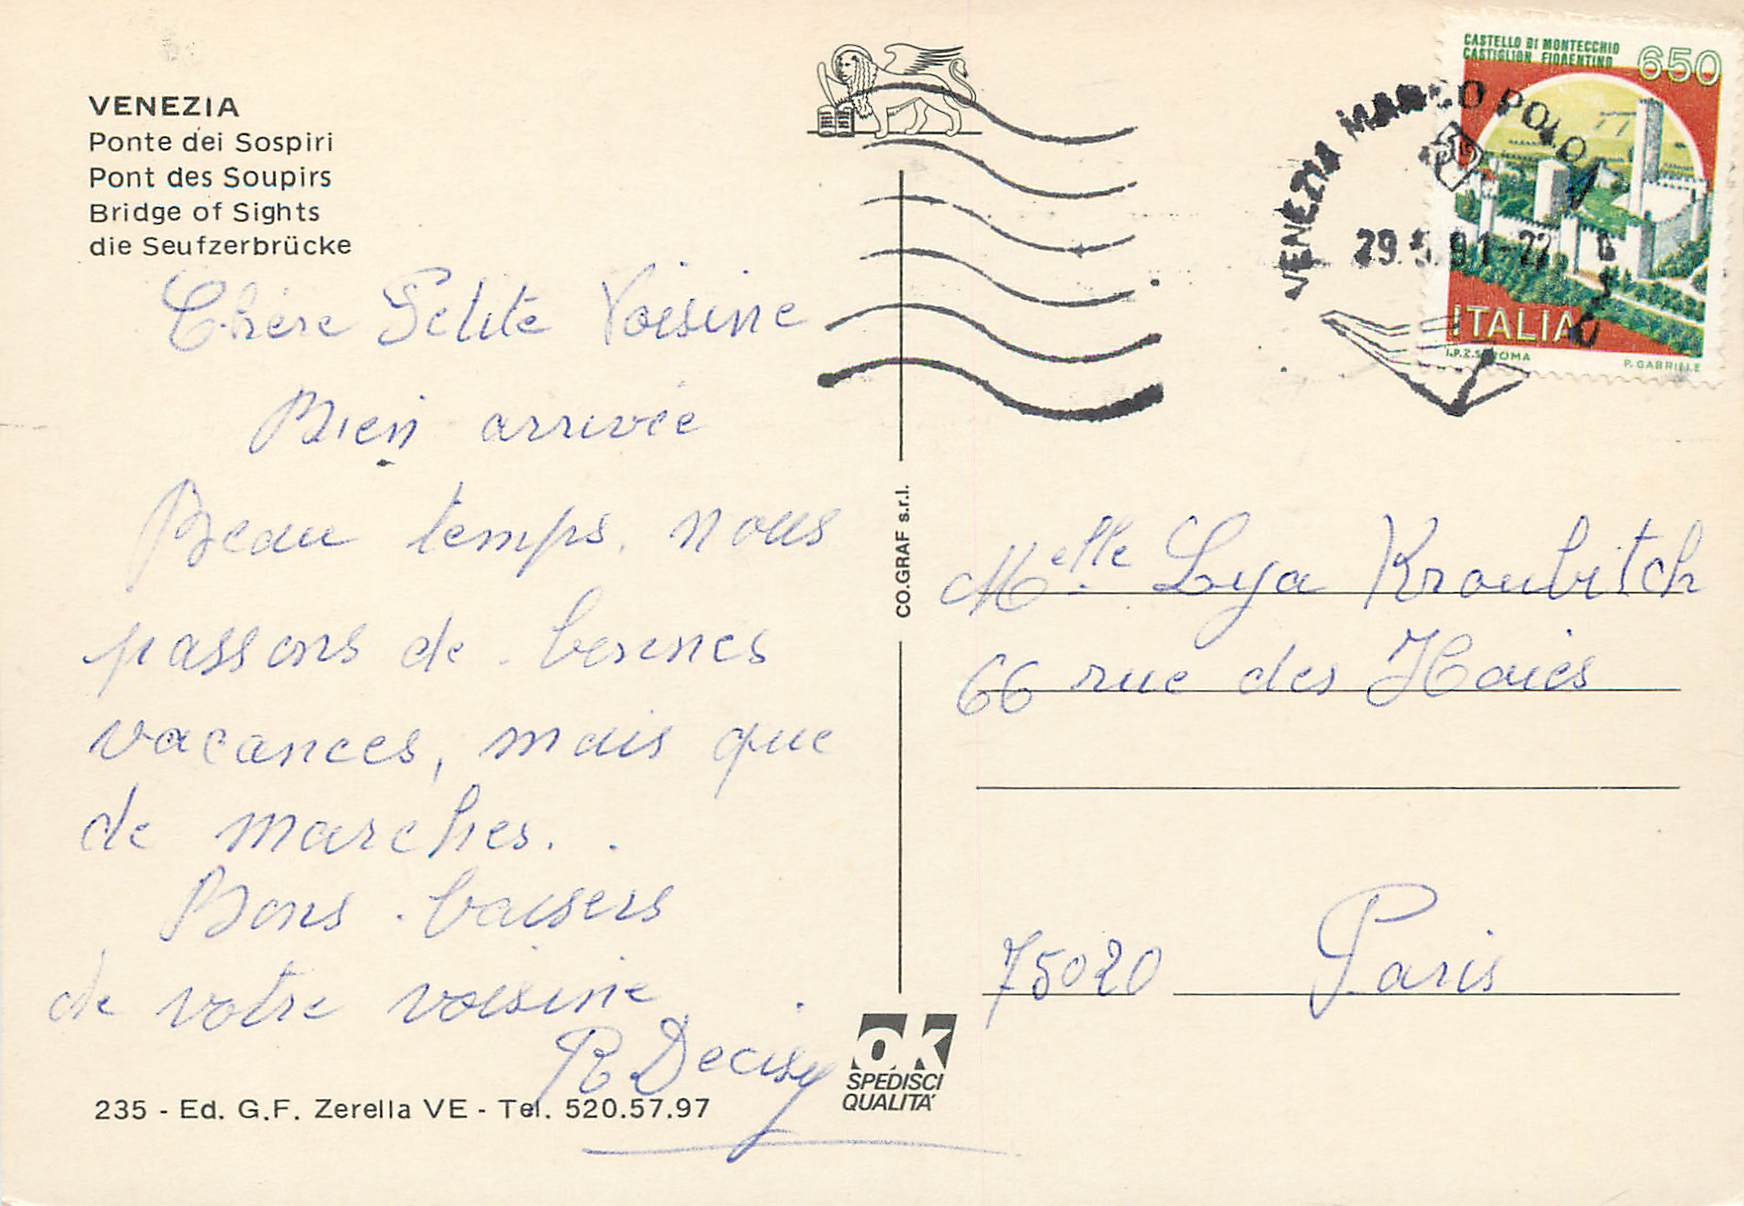 VENEZIA
Ponte dei Sospiri
Pont des Soupirs
Bridge of Sights
die Seufzerbrücke
Chère Petite Voisine
Bien arrivée
Beau temps, nous
passons de bonnes
vacances, mais que
de marches..
Bons baisers
de votre voisine
R Decisy
235 - Ed. G.F. Zerella VE - Tel. 520.57.97
CO.GRAF s.r.l.
OK
SPEDISCI
QUALITA'
CASTELLO DI MONTECCHIO
CASTIGLION FIORENTINO
650
ITALIA
I.P.Z.S. ROMA
P. GABRIELE
VENEZIA MARCO POLO
29.5.91-
Melle Lya Kroubitch
66 rue des Haies
75020 Paris